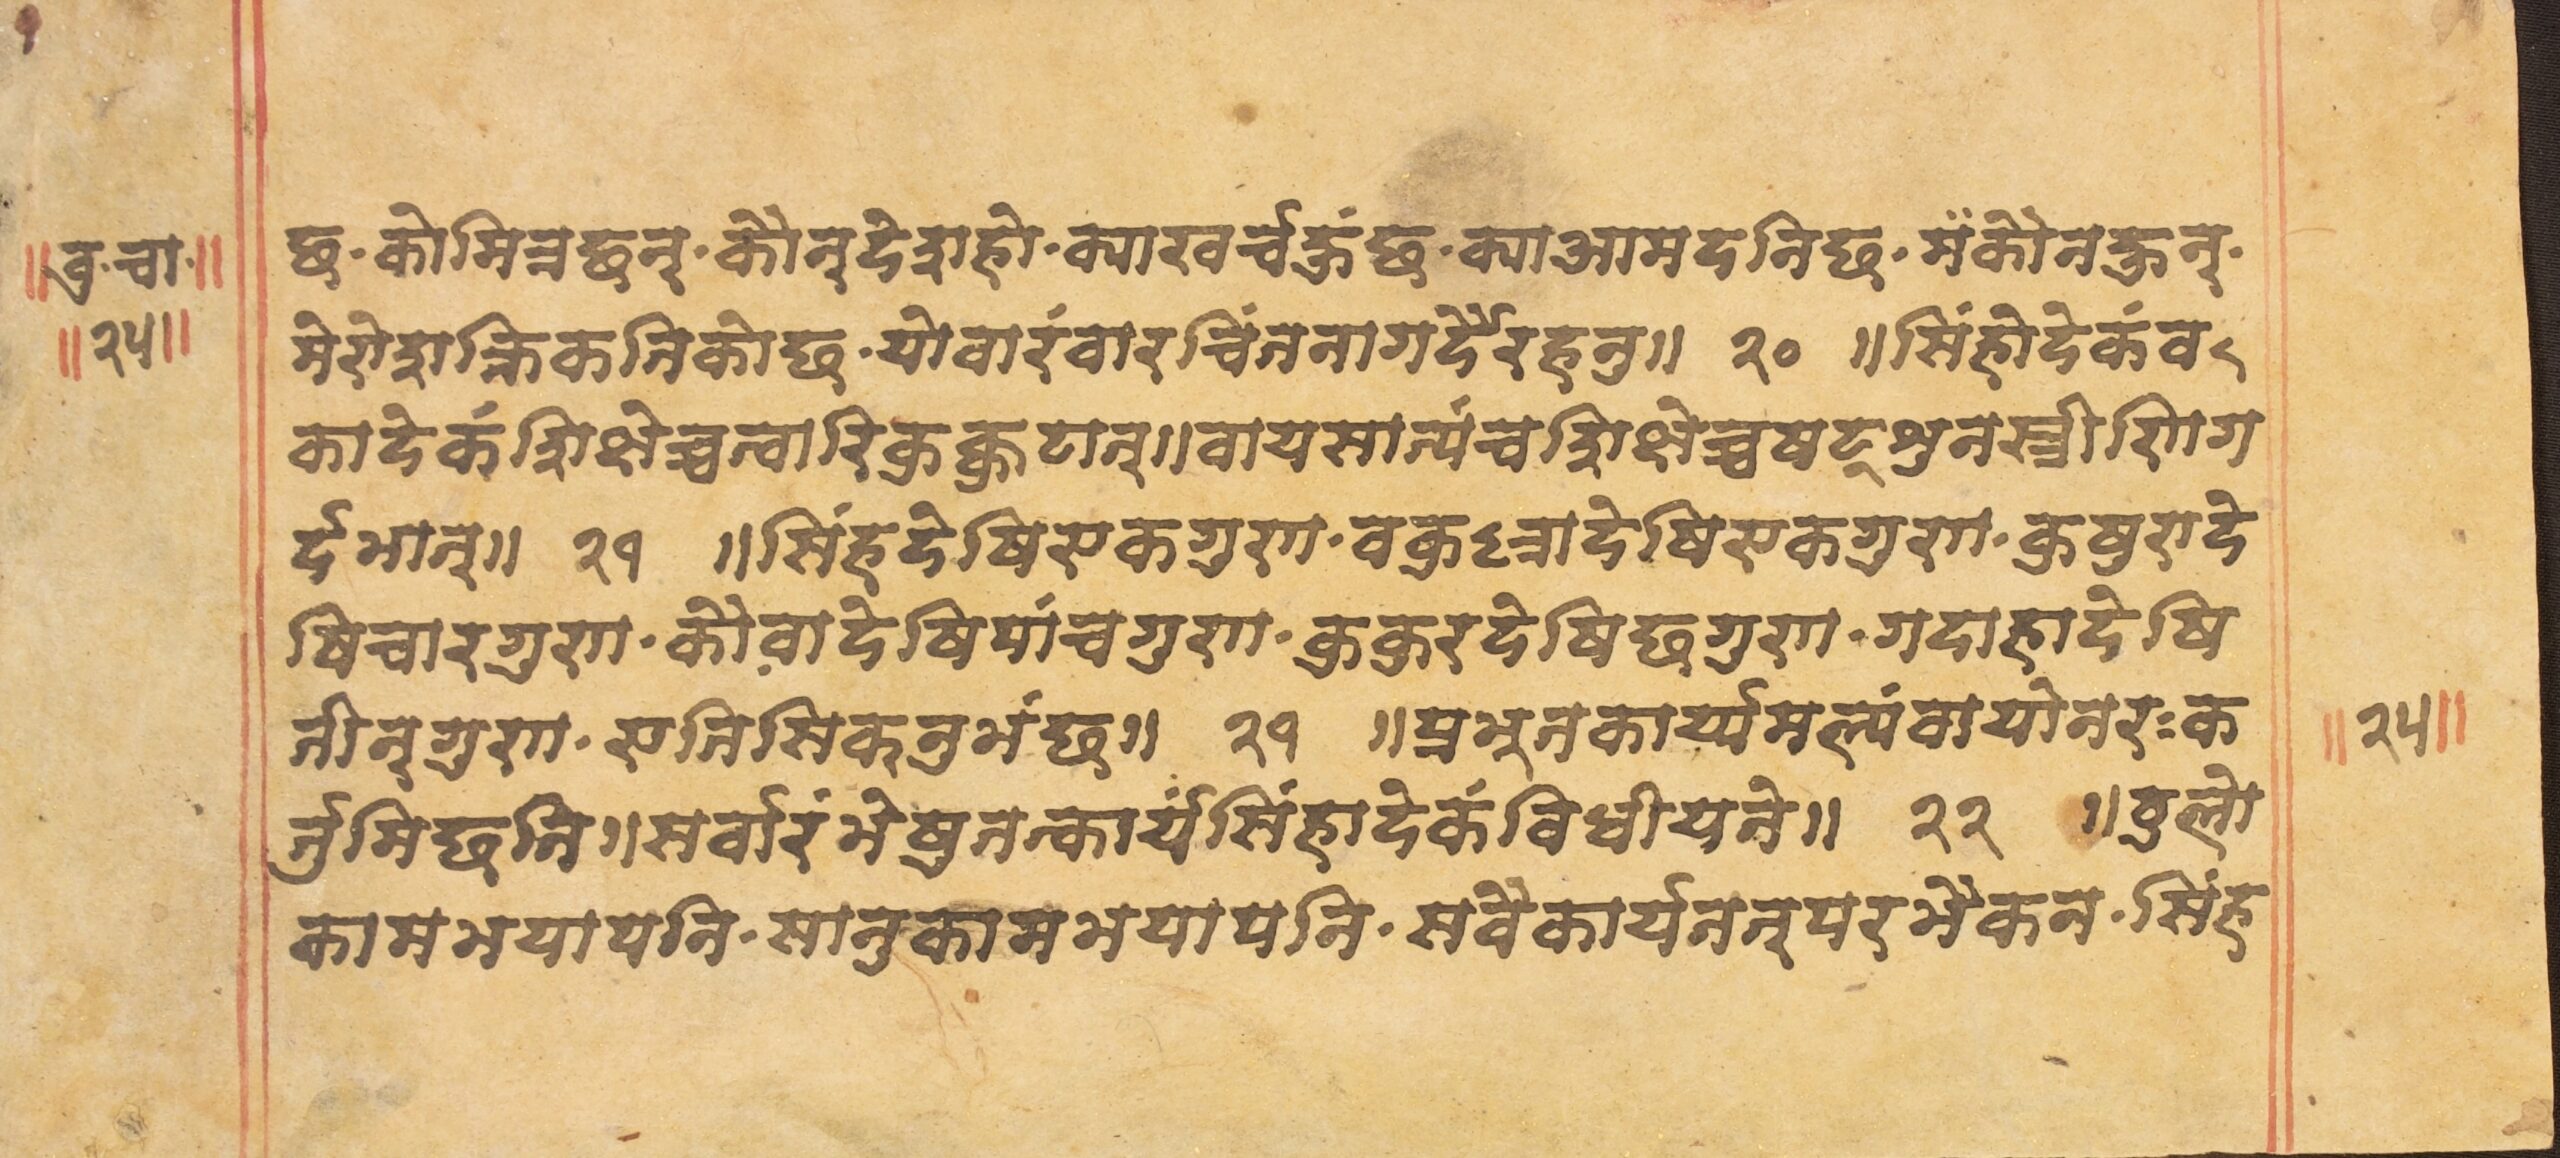 ॥वृ·चा·॥
॥२५॥
छ·को मित्र छन्·कौन् देश हो·क्या खर्च कँ छ·क्या आमदनि छ·म कौन कुन्·
मेरो शक्ति कति को छ·यो वारंवार चिंतना गर्दै रहनु॥ २० ॥सिंहादेकं व
कादेकं शिक्षेच्चत्वारि कुक्कुटात्॥वायसात्पंच शिक्षेच्च षट् शुनस्त्रीणि ग
र्दभात्॥ २१ ॥सिंह देषि एक गुण·वकुल्ला देषि एक गुण·कुषुरा दे
षि चार गुण·कौवा देषि पांच गुण·कुकुर देषि छ गुण·गदाहा देषि
तीन् गुण·एति सिक्नु पर्छ॥ २१ ॥प्रभूतकार्य्यमल्पं वा यो नरः क
र्तुमिछति॥सर्वारंभेषु तत्कार्यं सिंहादेकं विधीयते॥ २२ ॥ठुलो
काम भया पनि·सानु काम भया पनि·सवै कार्य तत्पर भैकन·सिंह
॥२५॥